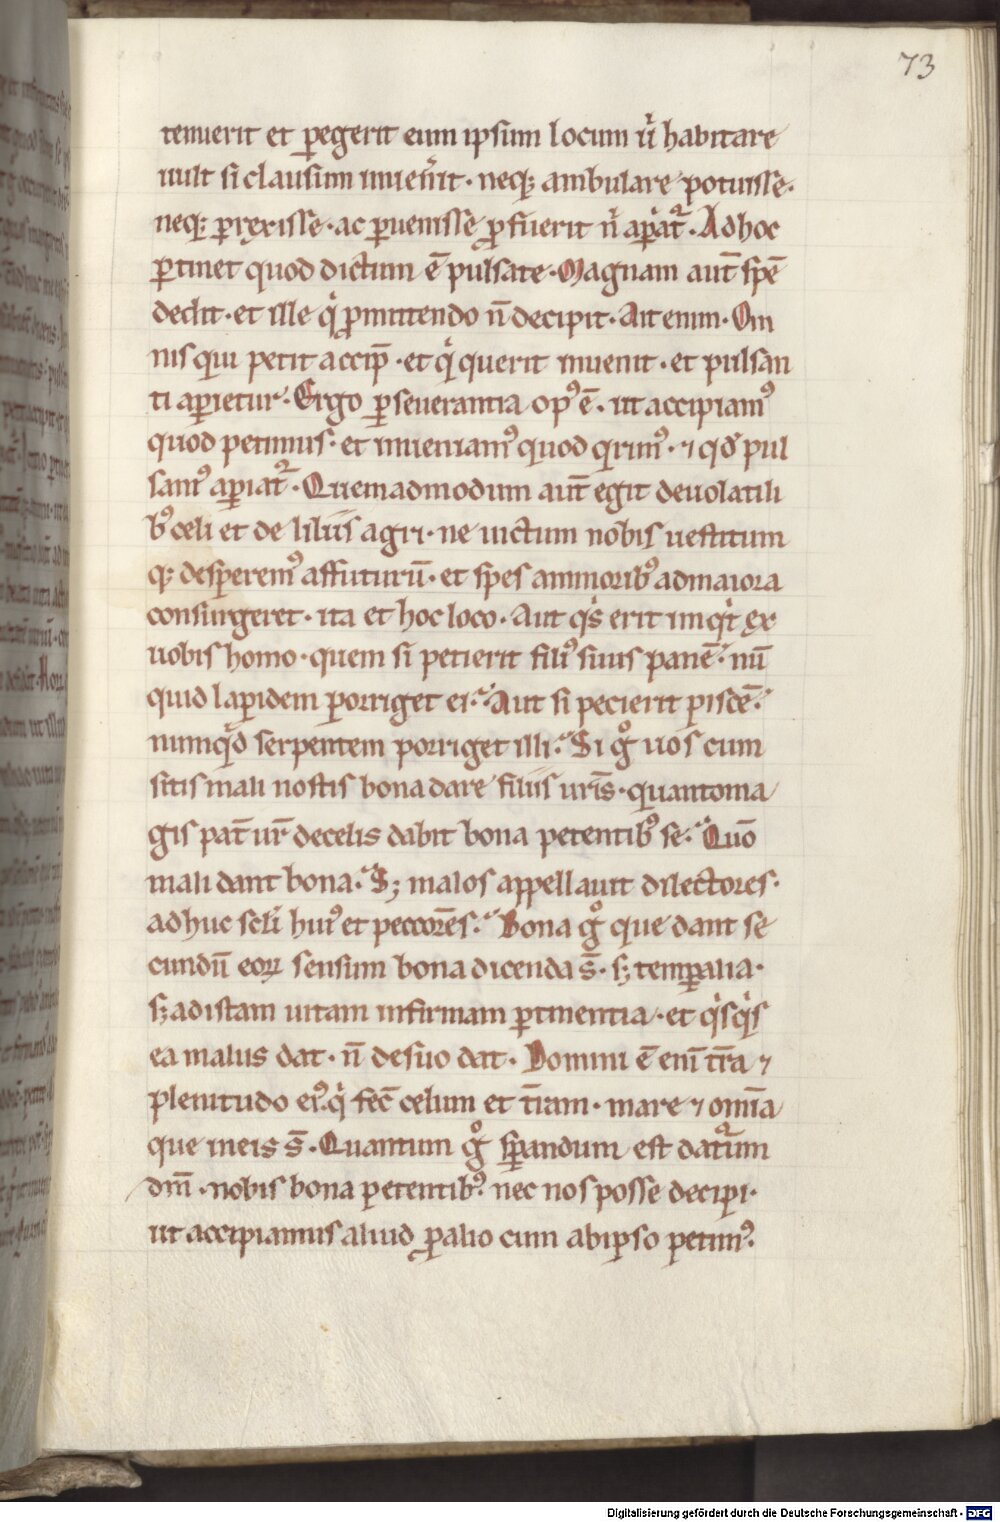 73
tenuerit et ꝑegerit eum ipsum locum u̓ habitare
uult si clausum inuen̓it · neq; ambulare potuisse ·
neq; ꝑrexisse · ac ꝑuenisse ꝓfuerit n̓ aꝑiat᷑ · Adhoc
ꝑtinet quod dictum ē pulsate · Magnam aut̄ spē
dedit · et ille q̓ ꝓmittendo n̄ decipit · Ait enim · Om
nis qui petit accip̄ · et q̓ querit inuenit · et pulsan
ti aꝑietur · Ergo ꝑseuerantia op᷒ ē · ut accipiam᷒
quod petimus · et inueniam᷒ quod q̓rim᷒ · ⁊ qd̓ pul
sam᷒ aꝑiat᷑ · Quemadmodum aut̄ egit deuolatili
b᷒ celi et de liliis agri · ne uictum nobis uestitum
q; desperem᷒ affuturū · et spes a minorib᷒ admaiora
consurgeret · ita et hoc loco · Aut q̓s erit inq̓t ex
uobis homo · quem si petierit fili᷒ suus panē · nū
quid lapidem porriget ei · Aut si pecierit piscē ·
numq̓d serpentem porriget illi · Si g̊ uos cum
sitis mali nostis bona dare filiis ur̄is · quantoma
gis pat̄ ur̄ decelis dabit bona petentib᷒ se · Quō
mali dant bona · S; malos appellauit dilectores ·
adhuc scl̓i hui᷒ et peccatores · Bona g̊ que dant se
cundū eoꝝ sensum bona dicenda s̄ · s; temꝑalia ·
s; adistam uitam infirmam ꝑtinentia · et q̓sq̓s
ea malus dat · n̄ desuo dat · Domini ē eni̅ tr̄a ⁊
plenitudo ei᷒ · q̓ fec̄ celum et t̄ram · mare ⁊ omīa
que ineis s̄ · Quantum g̊ sꝑandum est datuꝛum
dm̄ · nobis bona petentib᷒ · nec nos posse decipi ·
ut accipiamus aliud ꝑ alio cum abipso petim᷒ ·
Digitalisierung gefördert durch die Deutsche Forschungsgemeinschaft - DFG